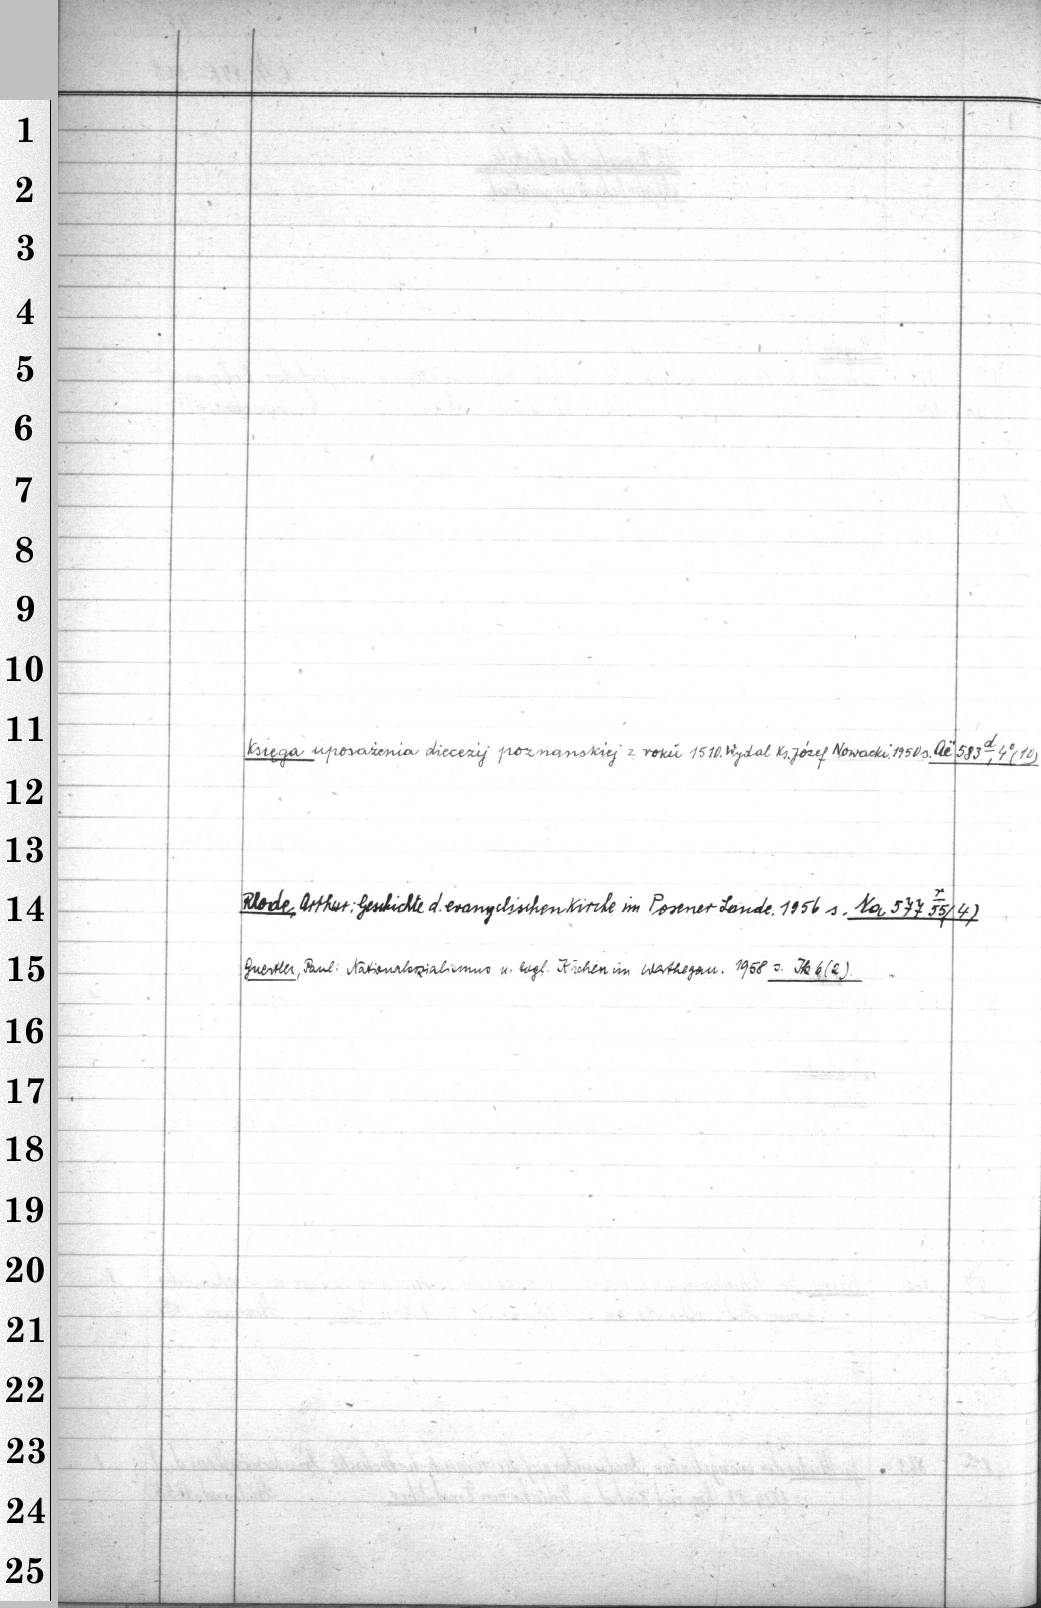 1
2
3
4
5
6
7
8
9
10
11
Księga uposażenia diecezij poznanskiej z roku 1510. Wydal Ks. Józef Nowacki. 1950 s. Aë 583 d, 4° (10)
12
13
14
Rhode, Arthur: Geschichte d. evangelischen Kirche im Posener Lande. 1956 s. Na 577 r/55 (4)
15
Guertler, Paul: Nationalsozialismus u. evgl. Kirchen im Warthegau. 1958 s. 6 (2).
16
17
18
19
20
21
22
23
24
25